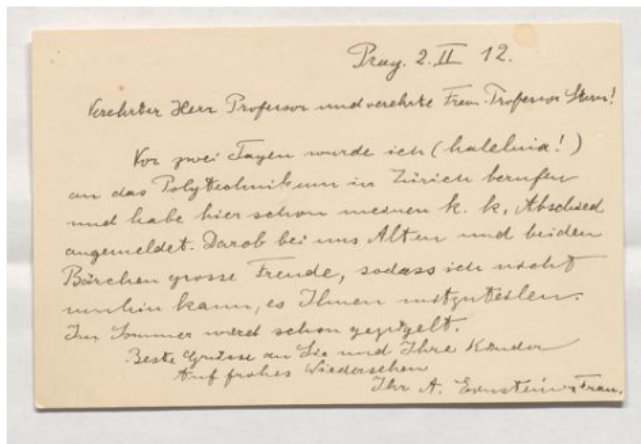 Prag. 2. II 12.
Verehrter Herr Professor und verehrte Frau Professor Stern!
Vor zwei Tagen wurde ich (haleluia!)
an das Polytechnikum in Zürich berufen
und habe hier schon meinen k. k. Abschied
angemeldet. Darob bei uns Alten und beiden
Bärchen grosse Freude, sodass ich nicht
umhin kann, es Ihnen mitzuteilen.
Im Sommer wird schon gezügelt.
Beste Grüsse an Sie und Ihre Kinder
Auf frohes Wiedersehen
Ihr A. Einstein u Frau.